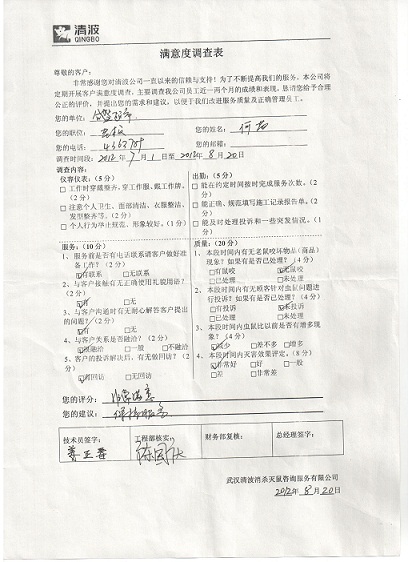 清波
QINGBO
满意度调查表
尊敬的客户：
非常感谢您对清波公司一直以来的信赖与支持！为了不断提高我们的服务，本公司将
定期开展客户满意度调查，主要调查我公司员工近一两个月的成绩和表现，恳请您给予合理
公正的评价，并提出您的需求和建议，以便于我们改进服务质量及正确管理员工。
您的单位：
您的职位： 您的姓名：
您的电话： 您的邮箱：
调查时间段：2012年7月1日至2012年8月20日
调查内容：
仪容仪表：（5分）
□ 工作时穿戴整齐，穿工作服、戴工作牌。
（2分）
□ 注意个人卫生、面部清洁、衣服整洁、
发型整齐等。（2分）
□ 个人行为举止规范，形象较好。（1分）
出勤：（5分）
□ 能在约定时间按时完成服务次数。（2
分）
□ 能正确、规范填写施工记录报告单。（2
分）
□ 能及时处理投诉和一些突发情况。（1
分）
服务：（10分）
1、服务前是否有电话联系请客户做好准
备工作？（2分）
☑有联系 □无联系
2、与客户接触有无正确使用礼貌用语？
（2分）
☑有 □无
3、与客户沟通时有无耐心解答客户提出
的问题？（2分）
☑有 □无
4、与客户关系是否融洽？（2分）
☑很融洽 □一般 □不融洽
5、客户的投诉解决后，有无做回访？（2
分）
☑有回访 □无回访
质量：（20分）
1、本段时间内有无老鼠咬坏物品（商品）
现象？如果有是否已处理？（4分）
□有鼠咬 ☑无鼠咬
□已处理 □未处理
2、本段时间内有无顾客针对虫鼠问题进
行投诉？如果有是否已处理？（4分）
□有投诉 ☑未投诉
□已处理 □未处理
3、本段时间内虫鼠比以前是否有增多现
象？（4分）
☑减少 □差不多 □增多
4、本段时间内灭害效果评定。（8分）
☑非常好 □好 □一般
□差 □非常差
您的评分：非常满意
您的建议：
技术员签字： 工程部核实： 财务部复核： 总经理签字：
武汉清波消杀灭鼠咨询服务有限公司
2012年8月20日